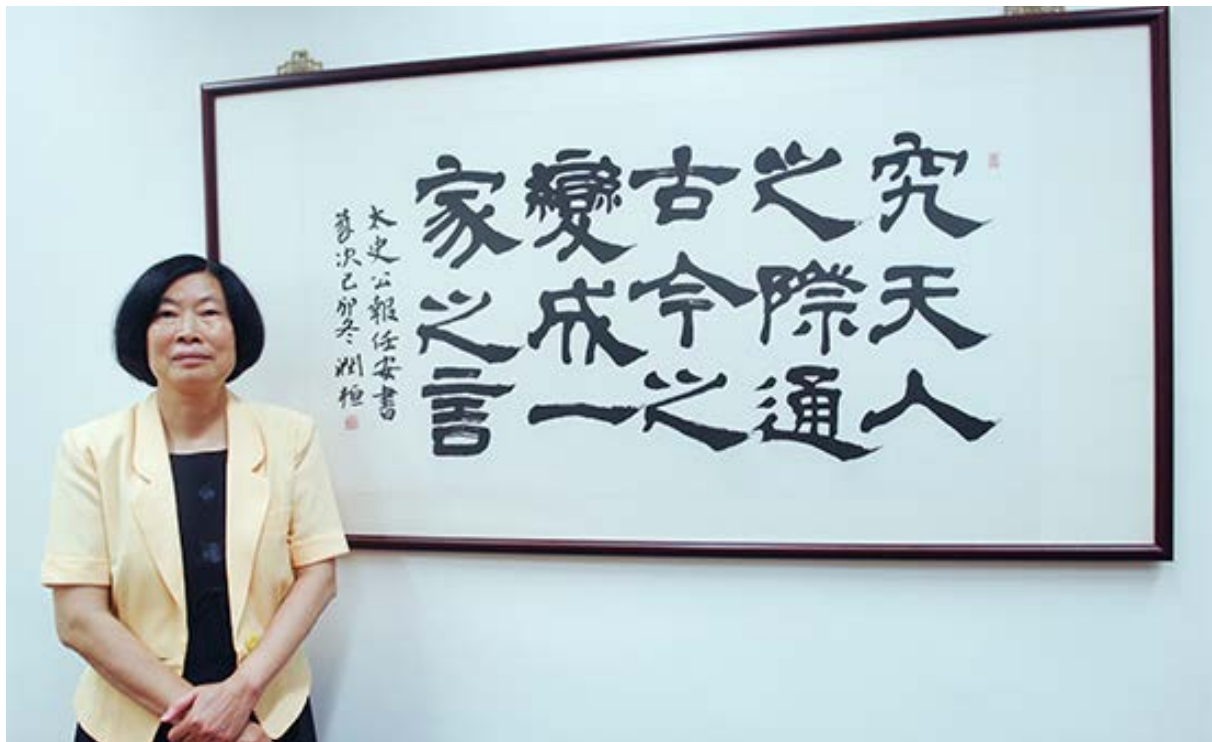 究天人
之際通
古今之
變成一
家之言
太史公報任安書
歲次己卯冬 潤桓